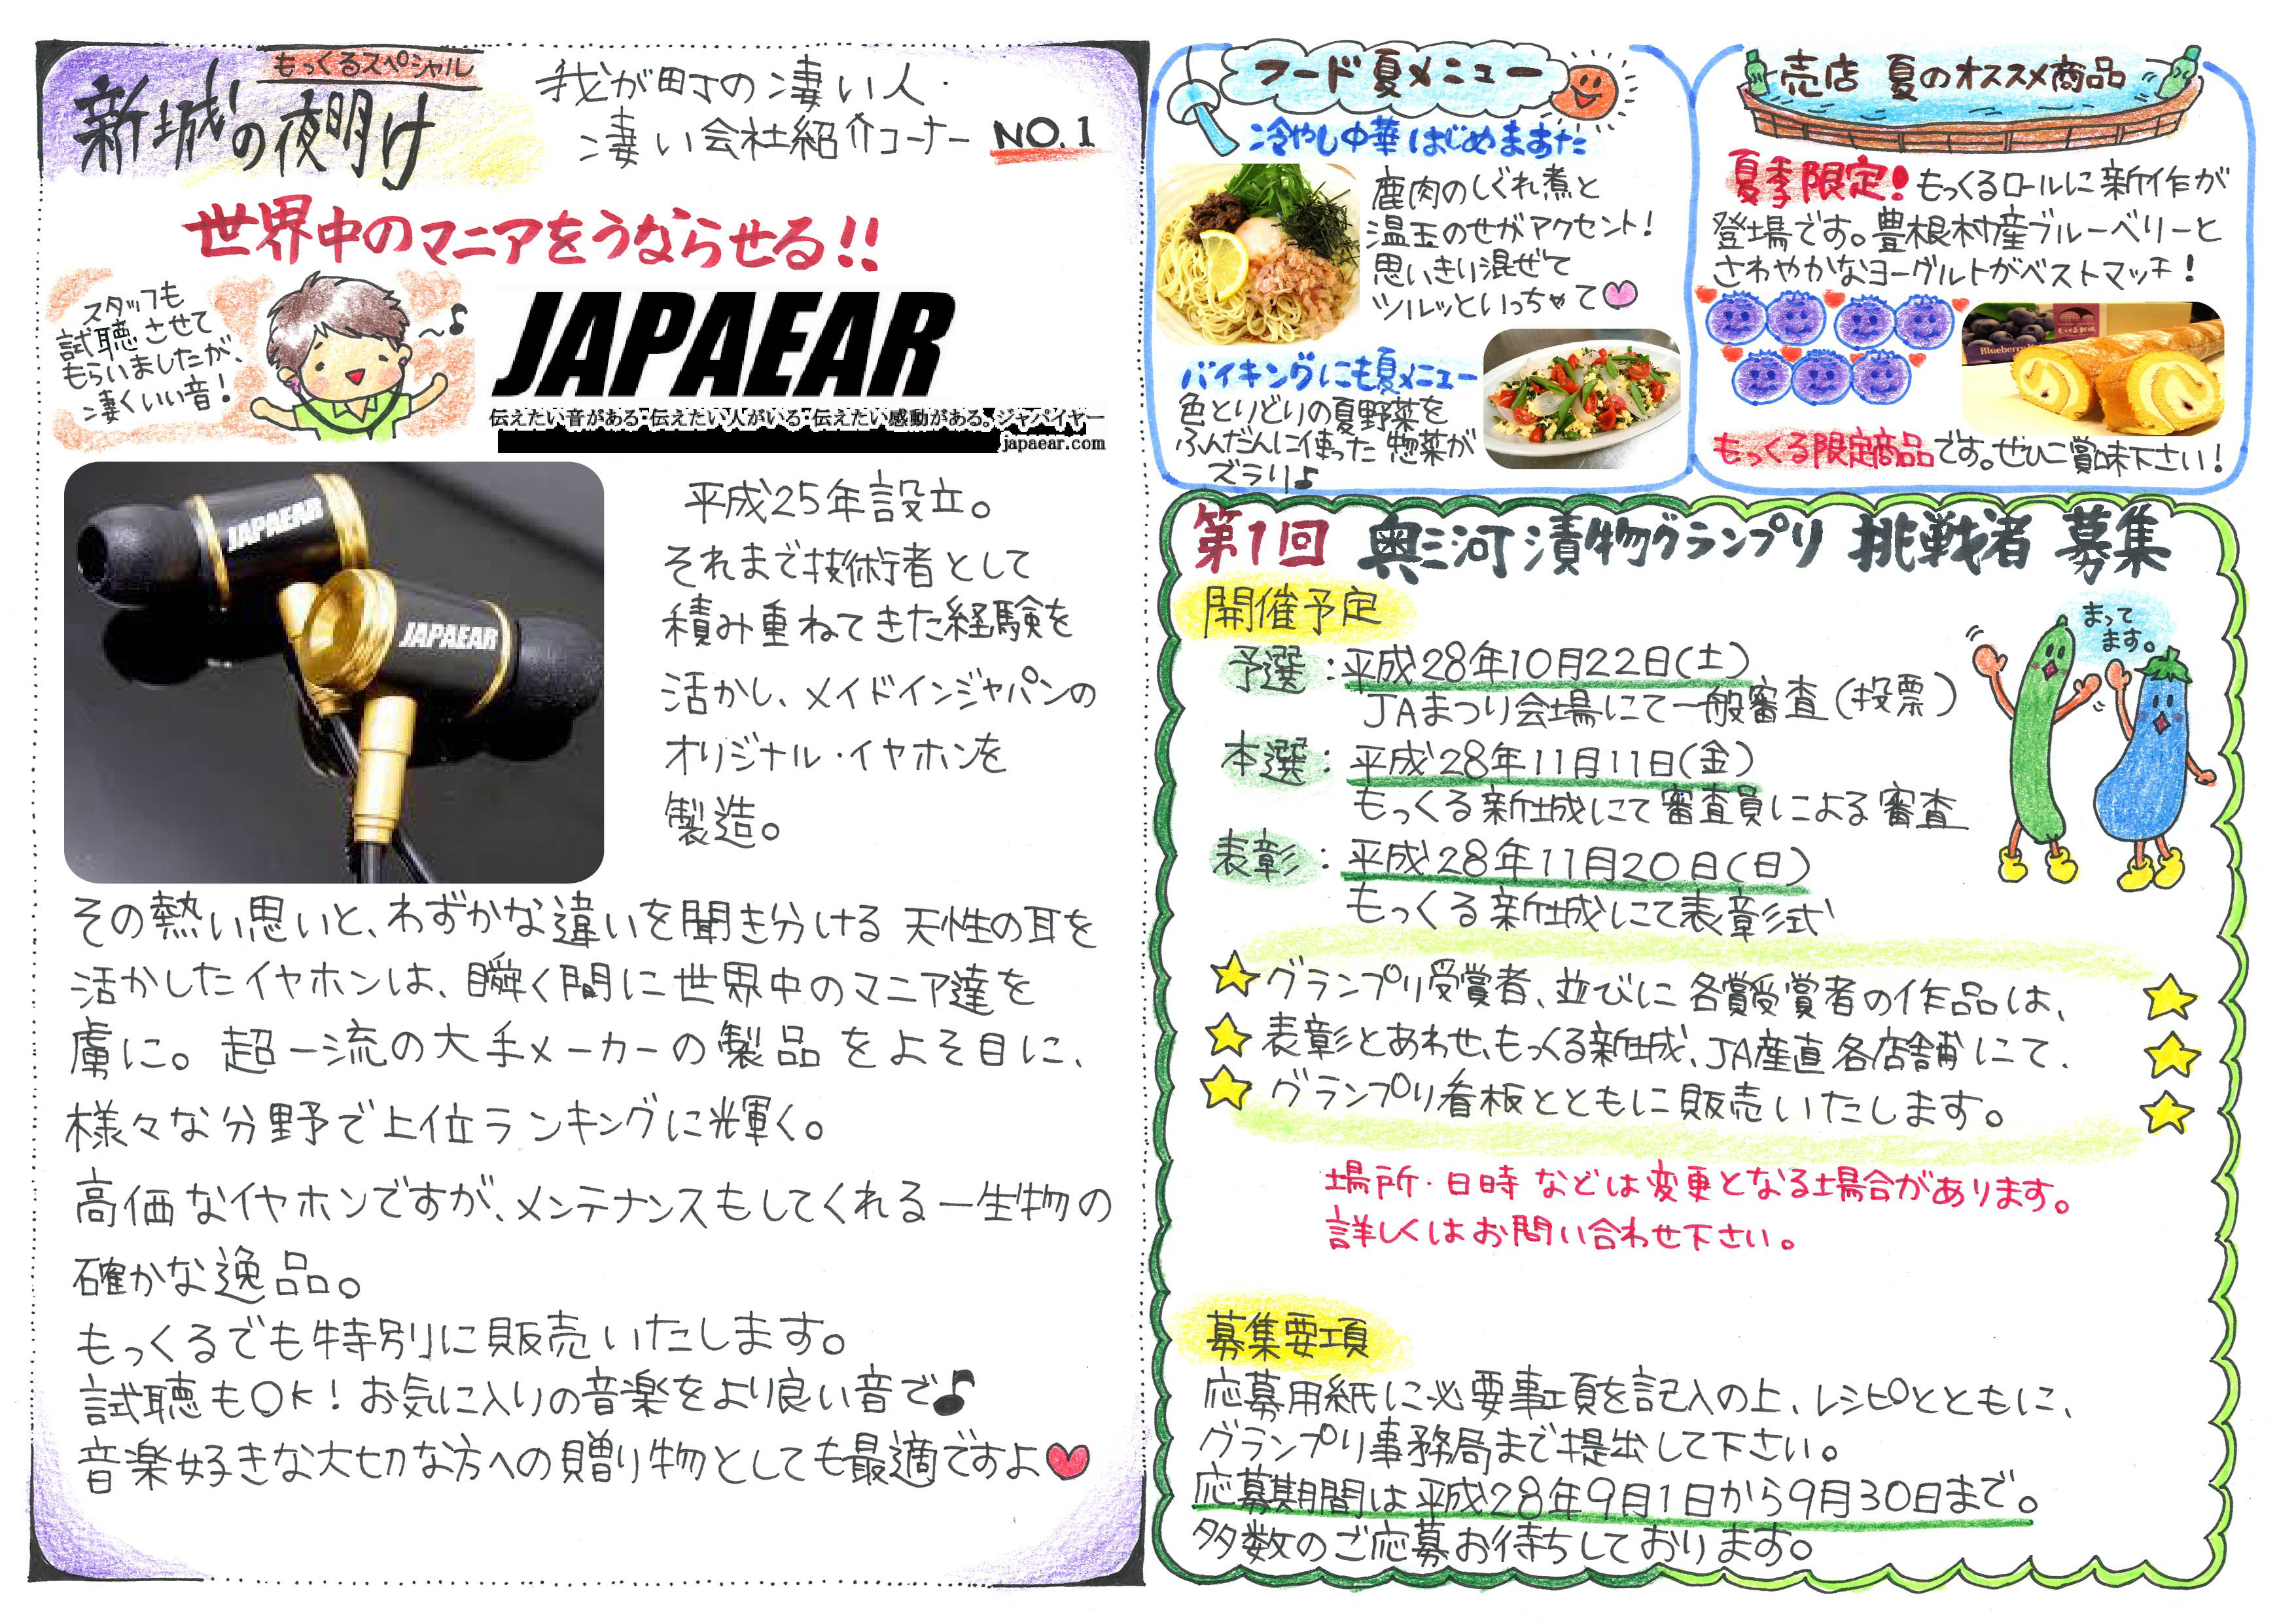 もっくるスペシャル
新城の夜明け
我が町の凄い人・
凄い会社紹介コーナー NO.1
世界中のマニアをうならせる!!
スタッフも
試聴させて
もらいましたが、
凄くいい音!
JAPAEAR
伝えたい音がある・伝えたい人がいる・伝えたい感動がある。ジャパイヤー
japaear.com
JAPAEAR
JAPAEAR
平成25年設立。
それまで技術者として
積み重ねてきた経験を
活かし、メイドインジャパンの
オリジナル・イヤホンを
製造。
その熱い思いと、わずかな違いを聞き分ける天性の耳を
活かしたイヤホンは、瞬く間に世界中のマニア達を
虜に。超一流の大手メーカーの製品をよそ目に、
様々な分野で上位ランキングに輝く。
高価なイヤホンですが、メンテナンスもしてくれる一生物の
確かな逸品。
もっくるでも特別に販売いたします。
試聴もOK!お気に入りの音楽をより良い音で♪
音楽好きな大切な方への贈り物としても最適ですよ♥
フード夏メニュー
冷やし中華はじめまあた
鹿肉のしぐれ煮と
温玉のせがアクセント!
思いきり混ぜて
ツルッといっちゃて♡
バイキングにも夏メニュー
色とりどりの夏野菜を
ふんだんに使った惣菜が
ズラリ♪
売店 夏のオススメ商品
夏季限定!もっくるロールに新作が
登場です。豊根村産ブルーベリーと
さわやかなヨーグルトがベストマッチ!
もっくる新城
Blueberry
もっくる限定商品です。ぜひご賞味下さい!
第1回 奥三河漬物グランプリ 挑戦者 募集
開催予定
まって
ます。
予選:平成28年10月22日(土)
JAまつり会場にて一般審査(投票)
本選:平成28年11月11日(金)
もっくる新城にて審査員による審査
表彰:平成28年11月20日(日)
もっくる新城にて表彰式
グランプリ受賞者、並びに各賞受賞者の作品は、
表彰とあわせ、もっくる新城、JA産直各店舗にて、
グランプリ看板とともに販売いたします。
場所・日時などは変更となる場合があります。
詳しくはお問い合わせ下さい。
募集要項
応募用紙に必要事項を記入の上、レシピとともに、
グランプリ事務局まで提出して下さい。
応募期間は平成28年9月1日から9月30日まで。
多数のご応募お待ちしております。